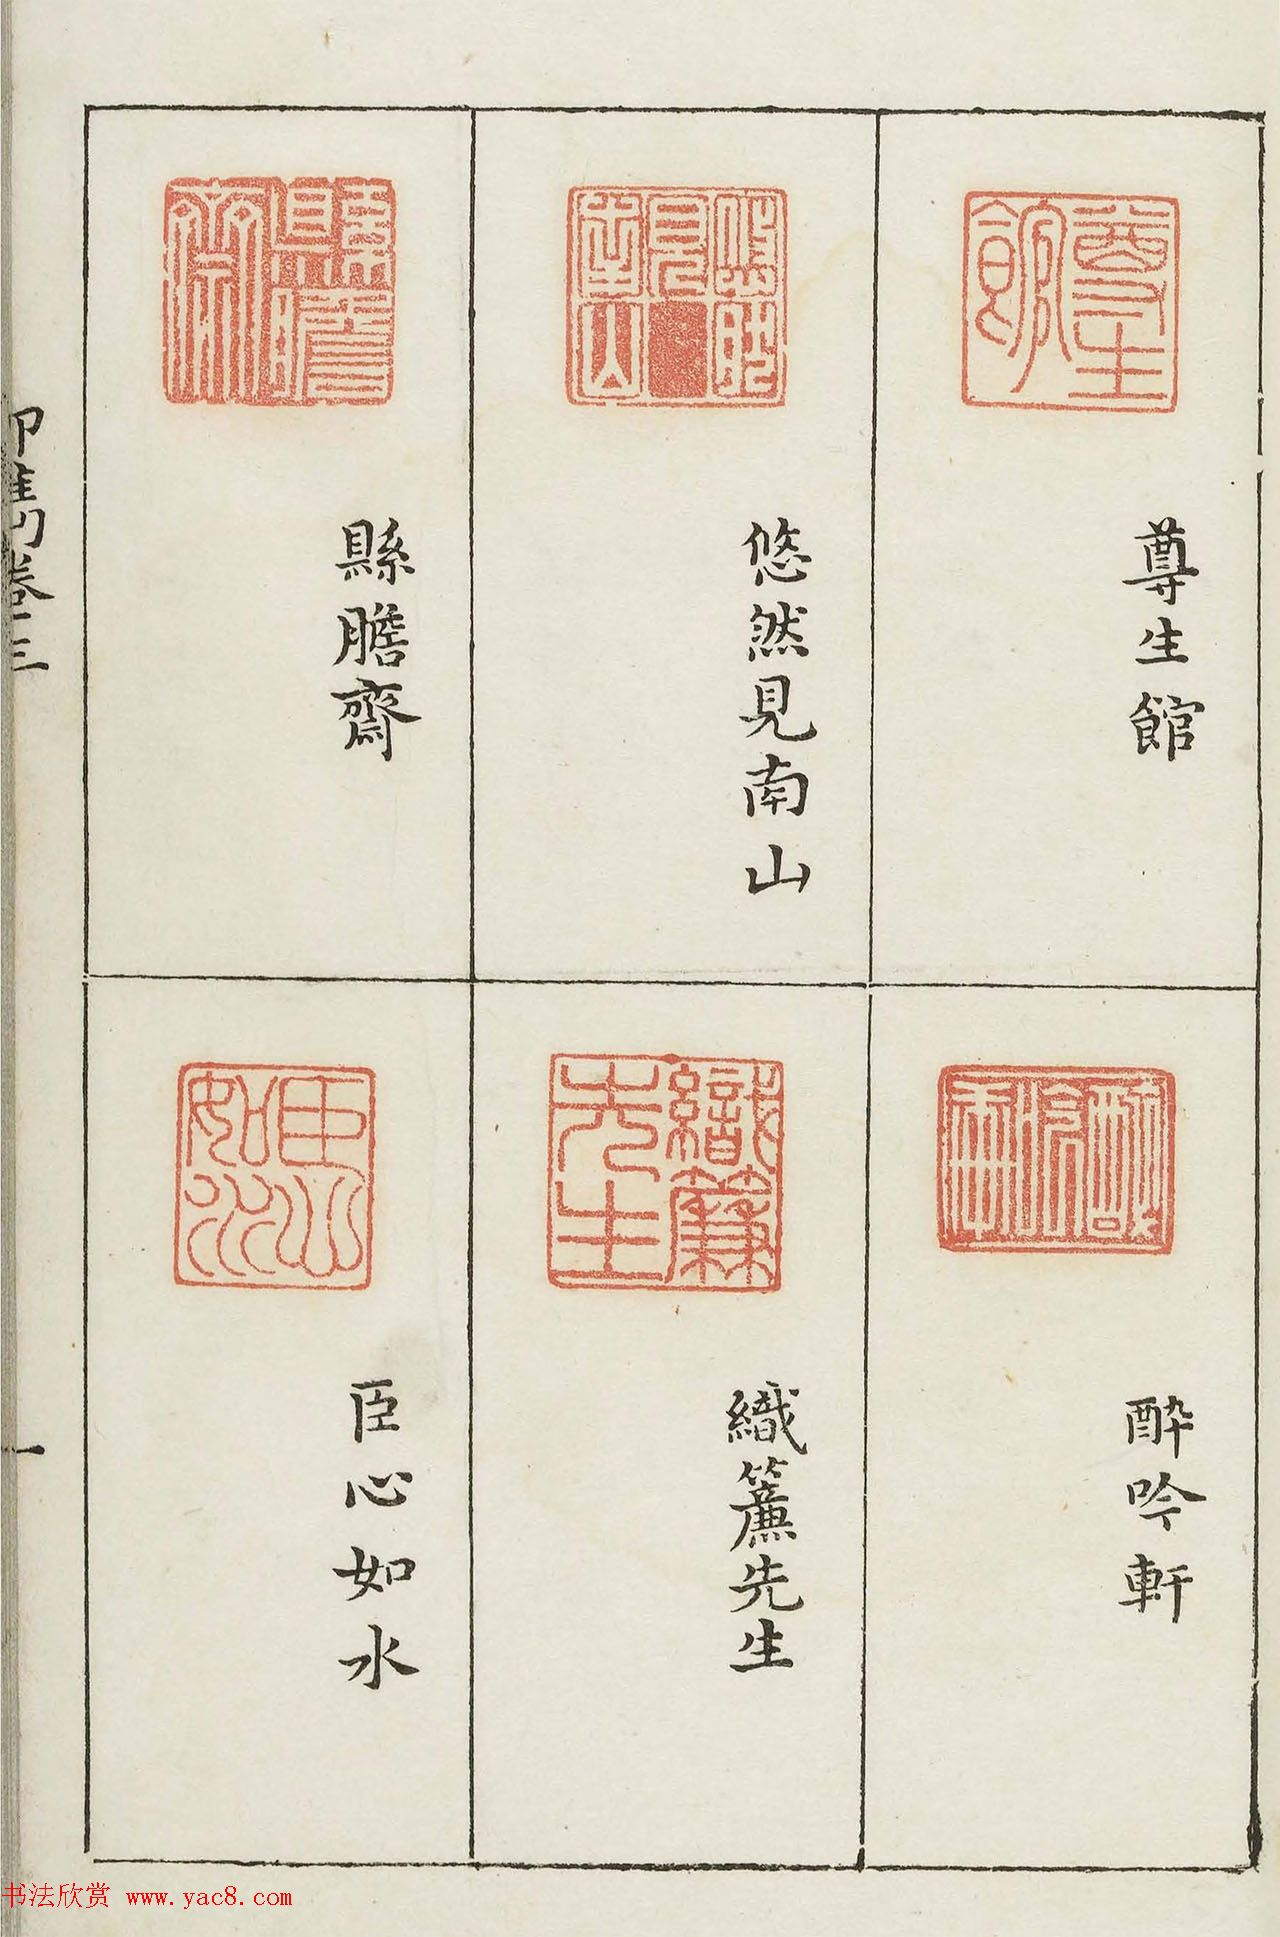 尊生館
悠然見南山
縣膽齋
醉吟軒
織簾先生
臣心如水
印雋卷三
一
书法欣赏 www.yac8.com